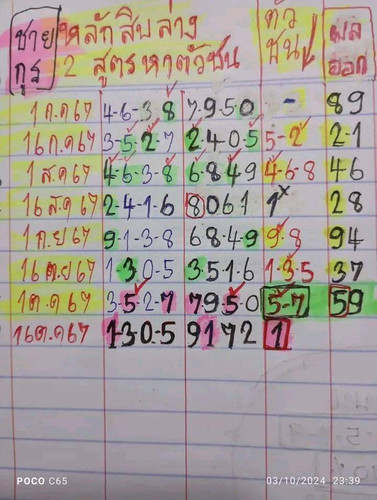 ชาย กุร หลักสิบล่าง ตัวชน ผลออก
2 สูตรหาตัวชน
1 ก.ค 67 4-6-3-8 7-9-5-0 - 89
16 ก.ค 67 3-5-2-7 2-4-0-5 5-2 2-1
1 ส.ค 67 4-6-3-8 6-8-4-9 4-6-8 46
16 ส.ค 67 2-4-1-6 8061 1x 28
1 ก.ย 67 9-1-3-8 6849 9-8 94
16 ก.ย 67 1-3-0-5 3-5-1-6 1-3-5 37
1 ต.ค 67 3-5-2-7 795-0 5-7 59
16 ต.ค 67 130-5 9172 1
POCO C65
03/10/2024 23:39